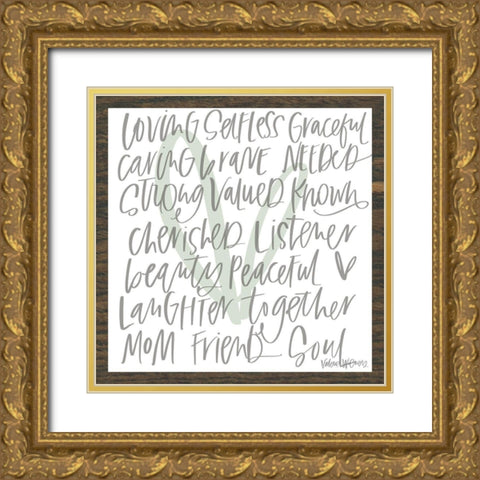 Loving Selfless Graceful
caring brave NEEDED
Strong Valued Known
cherished Listener
beauty Peaceful
LAUGHTER together
MOM FRIEND Soul